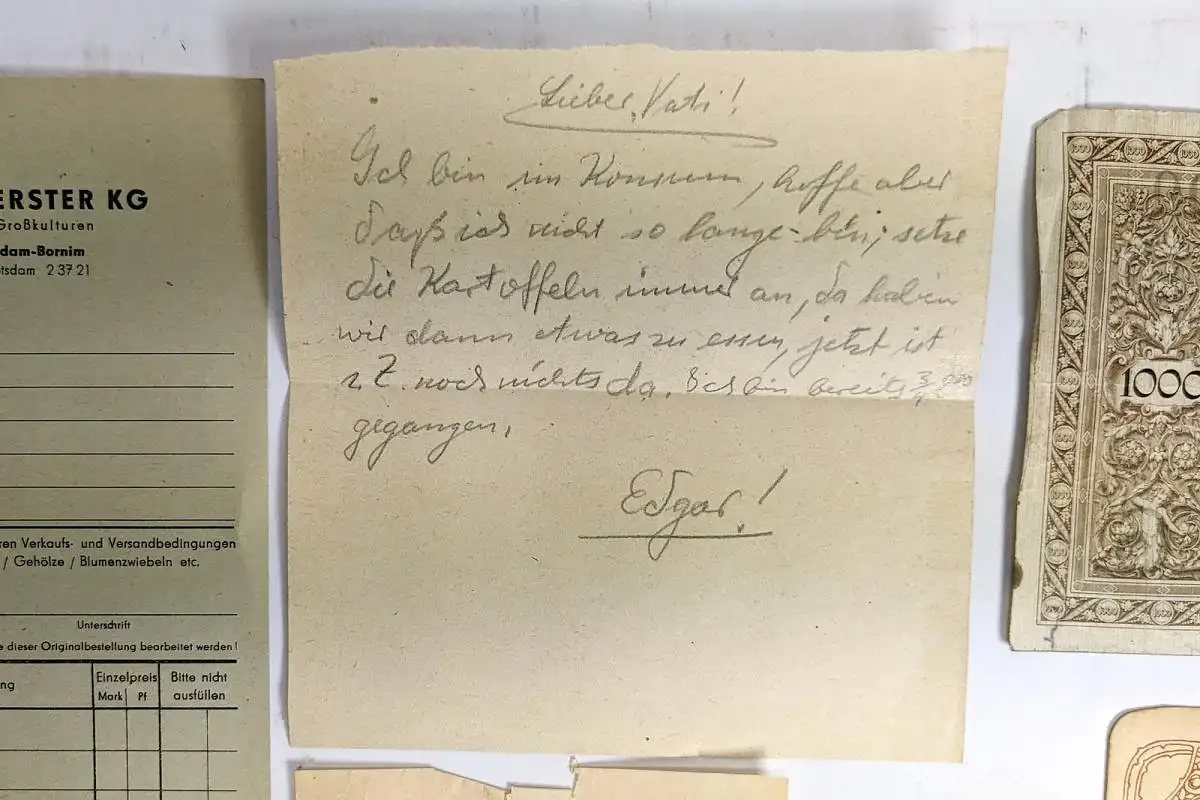 ERSTER KG
Großkulturen
dam-Bornim
tsdam 2 37 21
ren Verkaufs- und Versandbedingungen
/ Gehölze / Blumenzwiebeln etc.
Unterschrift
e dieser Originalbestellung bearbeitet werden!
ng
Einzelpreis
Mark Pf
Bitte nicht
ausfüllen
Lieber Vati!
Ich bin im Konsum, hoffe aber
daß ich nicht so lange bin; setze
die Kartoffeln immer an, da haben
wir dann etwas zu essen, jetzt ist
z. Z. noch nichts da. Ich bin bereits
gegangen.
Edgar!
1000